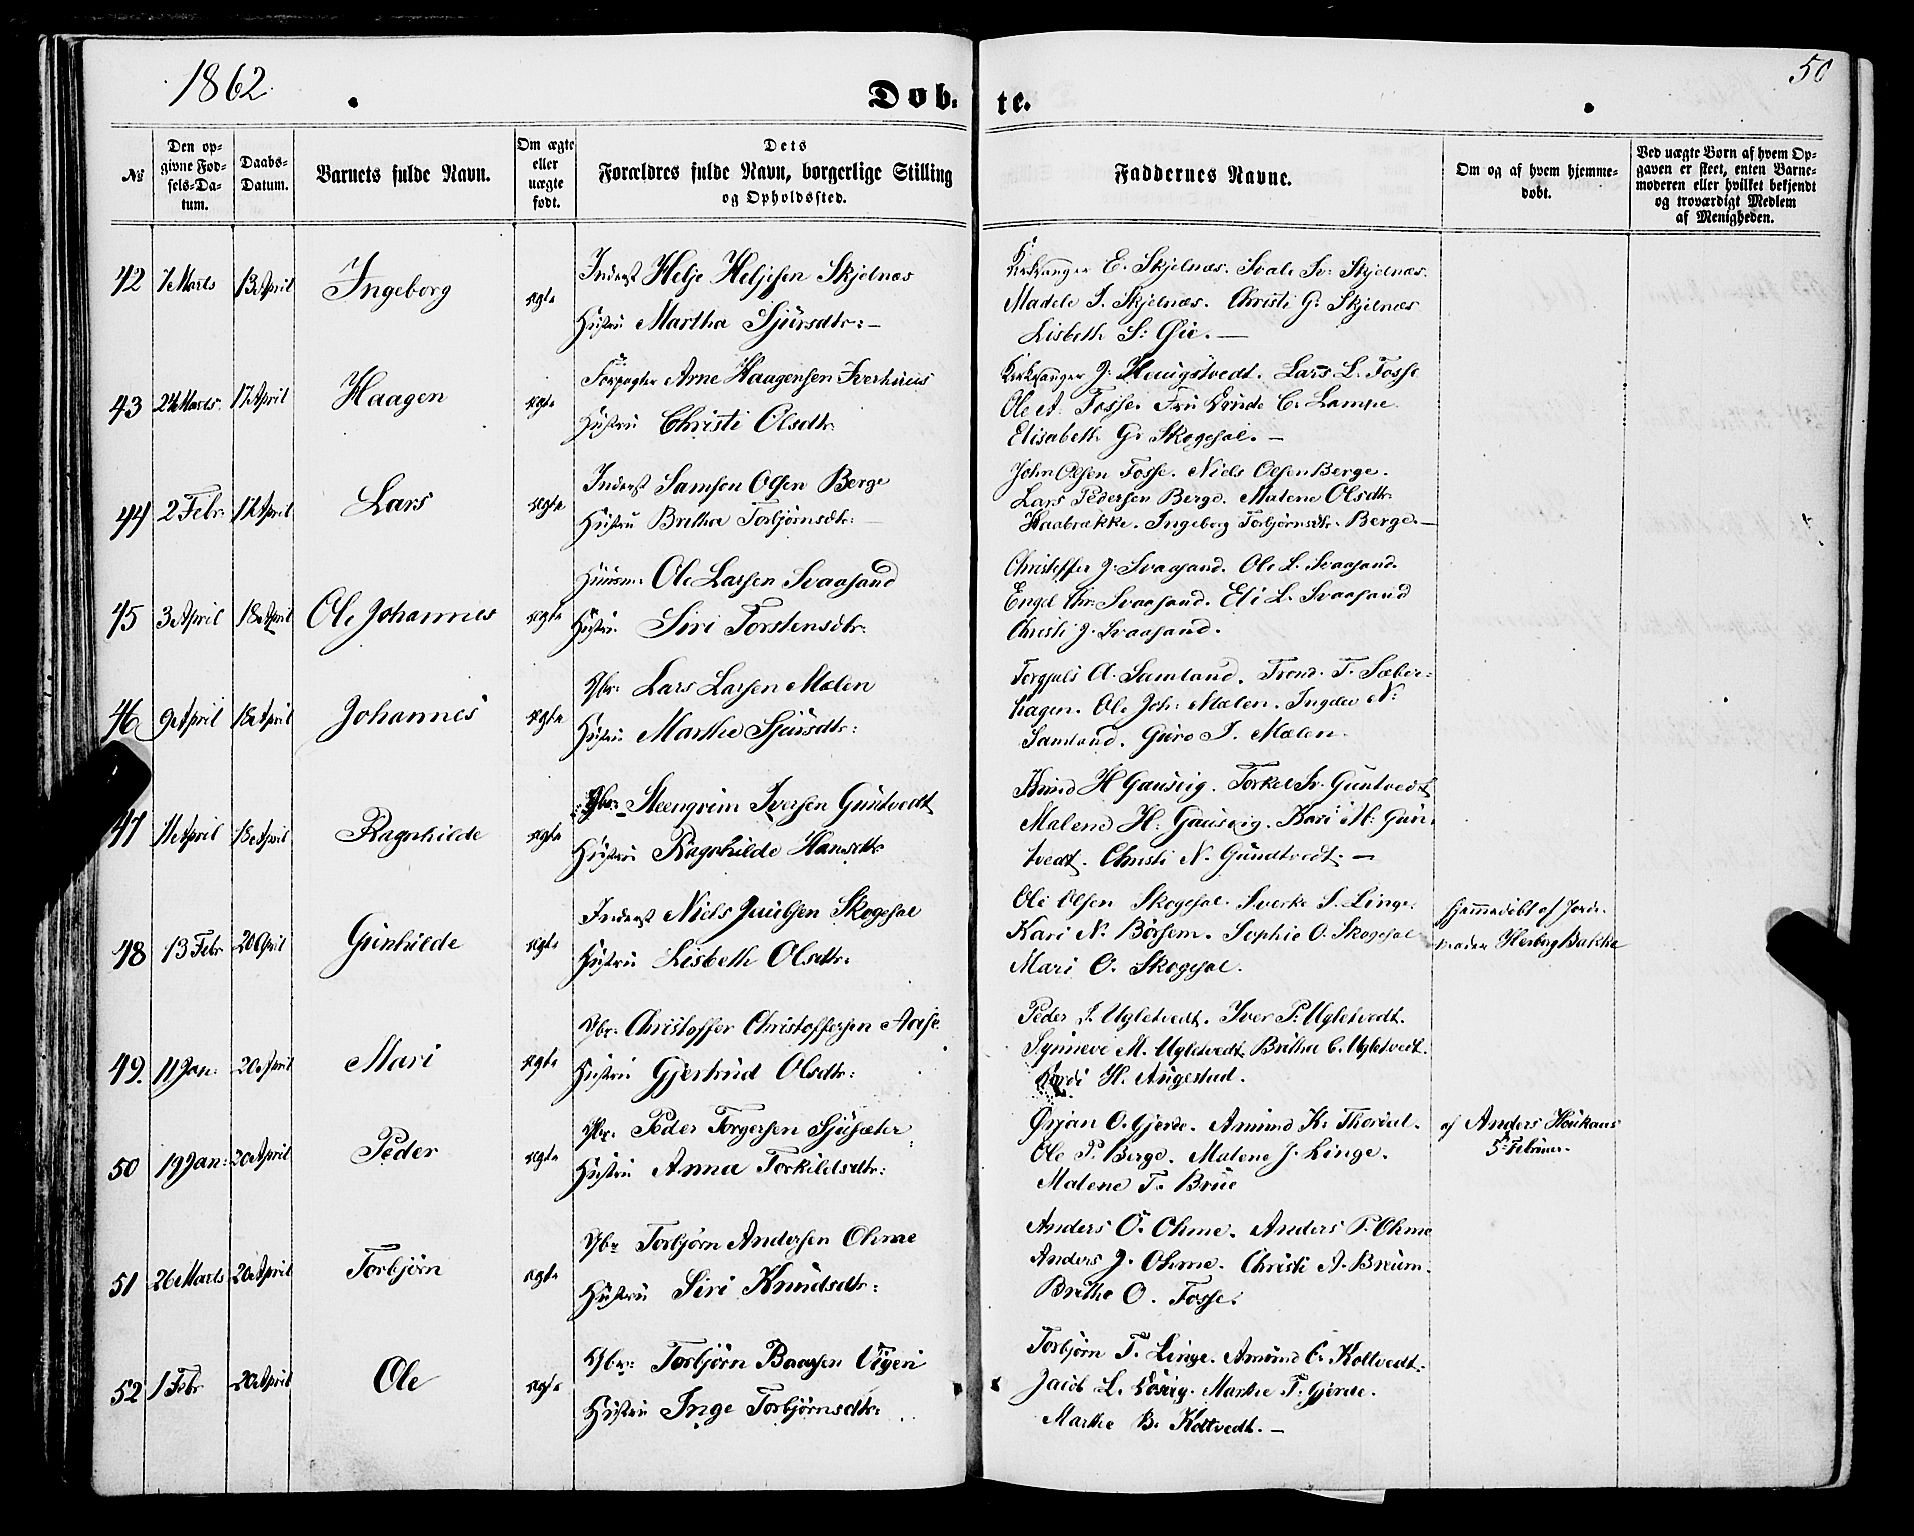 1862
Døb-
te.
50
№
Den op-
givne Fød-
sels-Da-
tum.
Daabs-
Datum.
Barnets fulde Navn.
Om ægte
eller
uægte
født.
Dets
Forældres fulde Navn, borgerlige Stilling
og Opholdssted.
Faddernes Navne.
Om og af hvem hjemme-
døbt.
Ved uægte Børn af hvem Op-
gaven er skeet, enten Barne-
moderen eller hvilket bekjendt
og troværdigt Medlem
af Menigheden.
42 7de Marts 13de April Ingeborg ægte
Inderst Helje Heljesen Skjelnæs
Hustru Martha Sjursdtr: —
Kirkesanger E. Skjelnæs. Skjelnæs.
Skjelnæs. Christi G. Skjelnæs
Lisbeth S: Øie. —
43 24de Marts. 17de April Haagen ægte
Forpagter Arne Haagensen
Hustru Christi Olsdtr:
Kirkesanger J: Haugstvedt. Lars L. Fosse
Ole A. Fosse. Fru C. Lampe.
Elisabeth G. Skogesal. —
44 2 Febr: 17de April Lars ægte
Inderst Samson Olsen Berge
Hustru Britha Torbjørnsdtr: —
John Olsen Fosse. Niels Olsen Berge.
Lars Pedersen Berge. Malene Olsdtr.
Haabrække. Ingeborg Torbjørnsdtr. Berge. —
45 3de April 18de April Ole Johannes ægte
Huusm: Ole Larsen Svaasand
Hustru Siri Torstensdtr:
Christoffer J. Svaasand. Ole L. Svaasand.
Engel Chr: Svaasand. Eli L. Svaasand
Christi J. Svaasand.
46 9de April 18de April Johannes ægte
Gbr: Lars Larsen Mælen
Hustru Marthe Sjursdtr:
Torgjuls A. Samland. Trond. T. Sæber-
hagen. Ole Joh: Mælen. N:
Samland. Guro I. Mælen.
47 11de April 18de April Ragnhilde ægte
Gbr: Steengrim Iversen Guntvedt
Hustru Ragnhilde Hansdtr
Knud H Gausvig. Torkel Guntvedt
Malene H: Gausvig. Kari M: Gun-
tvedt. Christi N. Gundtvedt. —
48 13 Febr 20 April Gunhilde ægte
Inderst Niels Skogesal
Hustru Lisbeth Olsdtr:
Ole Olsen Skogesal. Sverke S. Linge.
Kari N. Børsem. Sophie O. Skogesal
Mari O. Skogesal.
hjemmedøbt af Jorde-
moder Herborg Bakke
49. 11 Jan: 20de April Mari ægte
Gbr: Christoffer Christoffersen
Hustru Gjertrud Olsdtr:
Peder I. Ugletvedt. Iver P: Ugletvedt.
Synneve M. Ugletvedt. Britha C. Ugletvedt.
H. Augestad.
50 19 Jan: 20de April Peder ægte
Gbr. Peder Torgersen Sjusæter
Hustru Anna Torkildsdtr:
Ørjan O. Gjerde. Amund K. Thordal.
Ole P. Berge. Malene J. Linge.
Malene T. Brue
af Anders Houkaas
5te Februar.
51 26de Marts 20de April Torbjørn ægte
Gbr Torbjørn Andersen Ohme
Hustru Siri Knudsdtr:
Anders O. Ohme. Anders P. Ohme
Anders J. Ohme. Christi A. Bruun.
Brithe O. Fosse.
52 1 Febr 20de April Ole ægte
Gbr: Torbjørn Baarsen
Hustru Inge Torbjørnsdtr:
Torbjørn T. Linge. Amund B. Koltvedt.
Jacob L. Marthe T. Gjerde.
Marthe B. Koltvedt. —